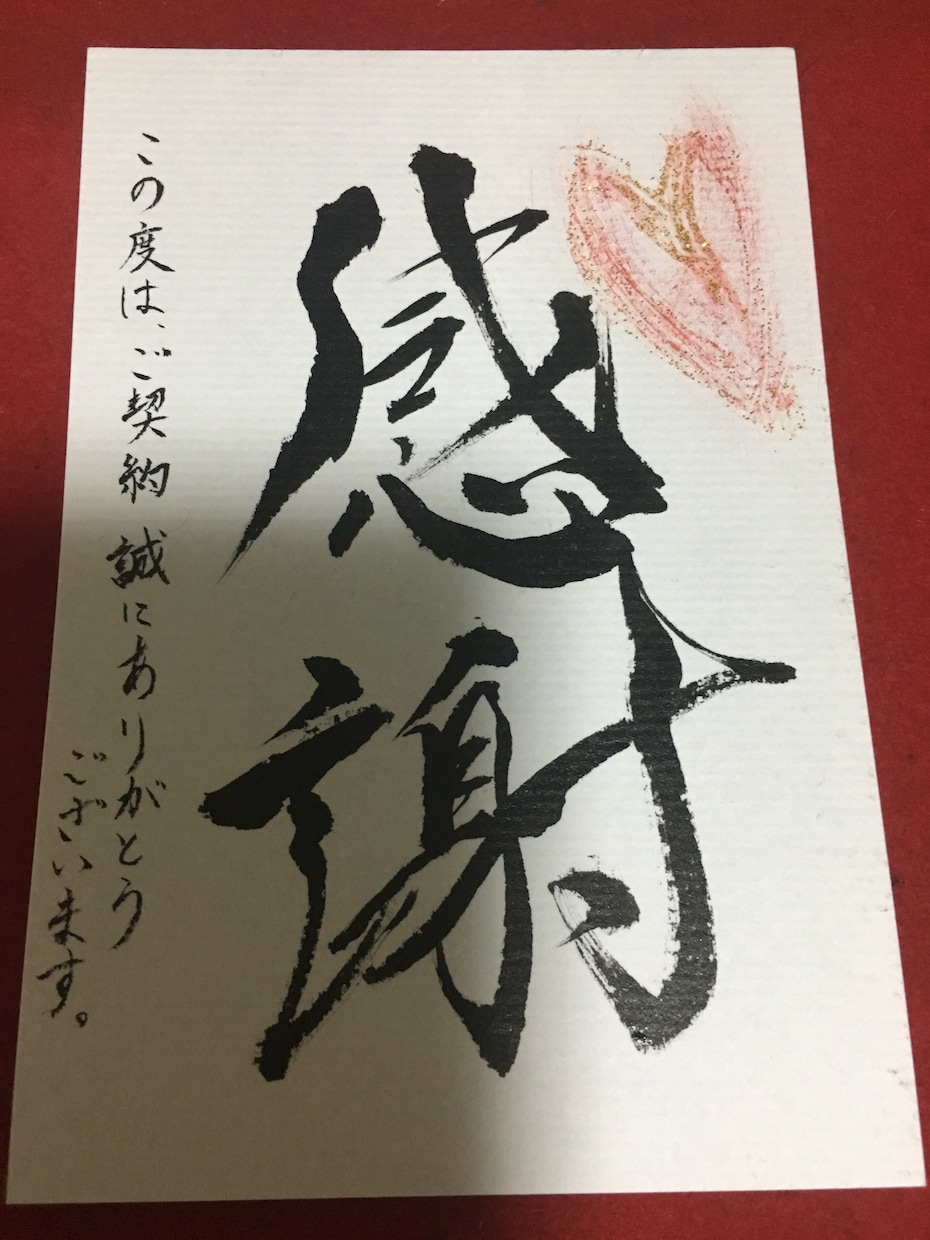 感謝
この度は、ご契約誠にありがとう
ございます。